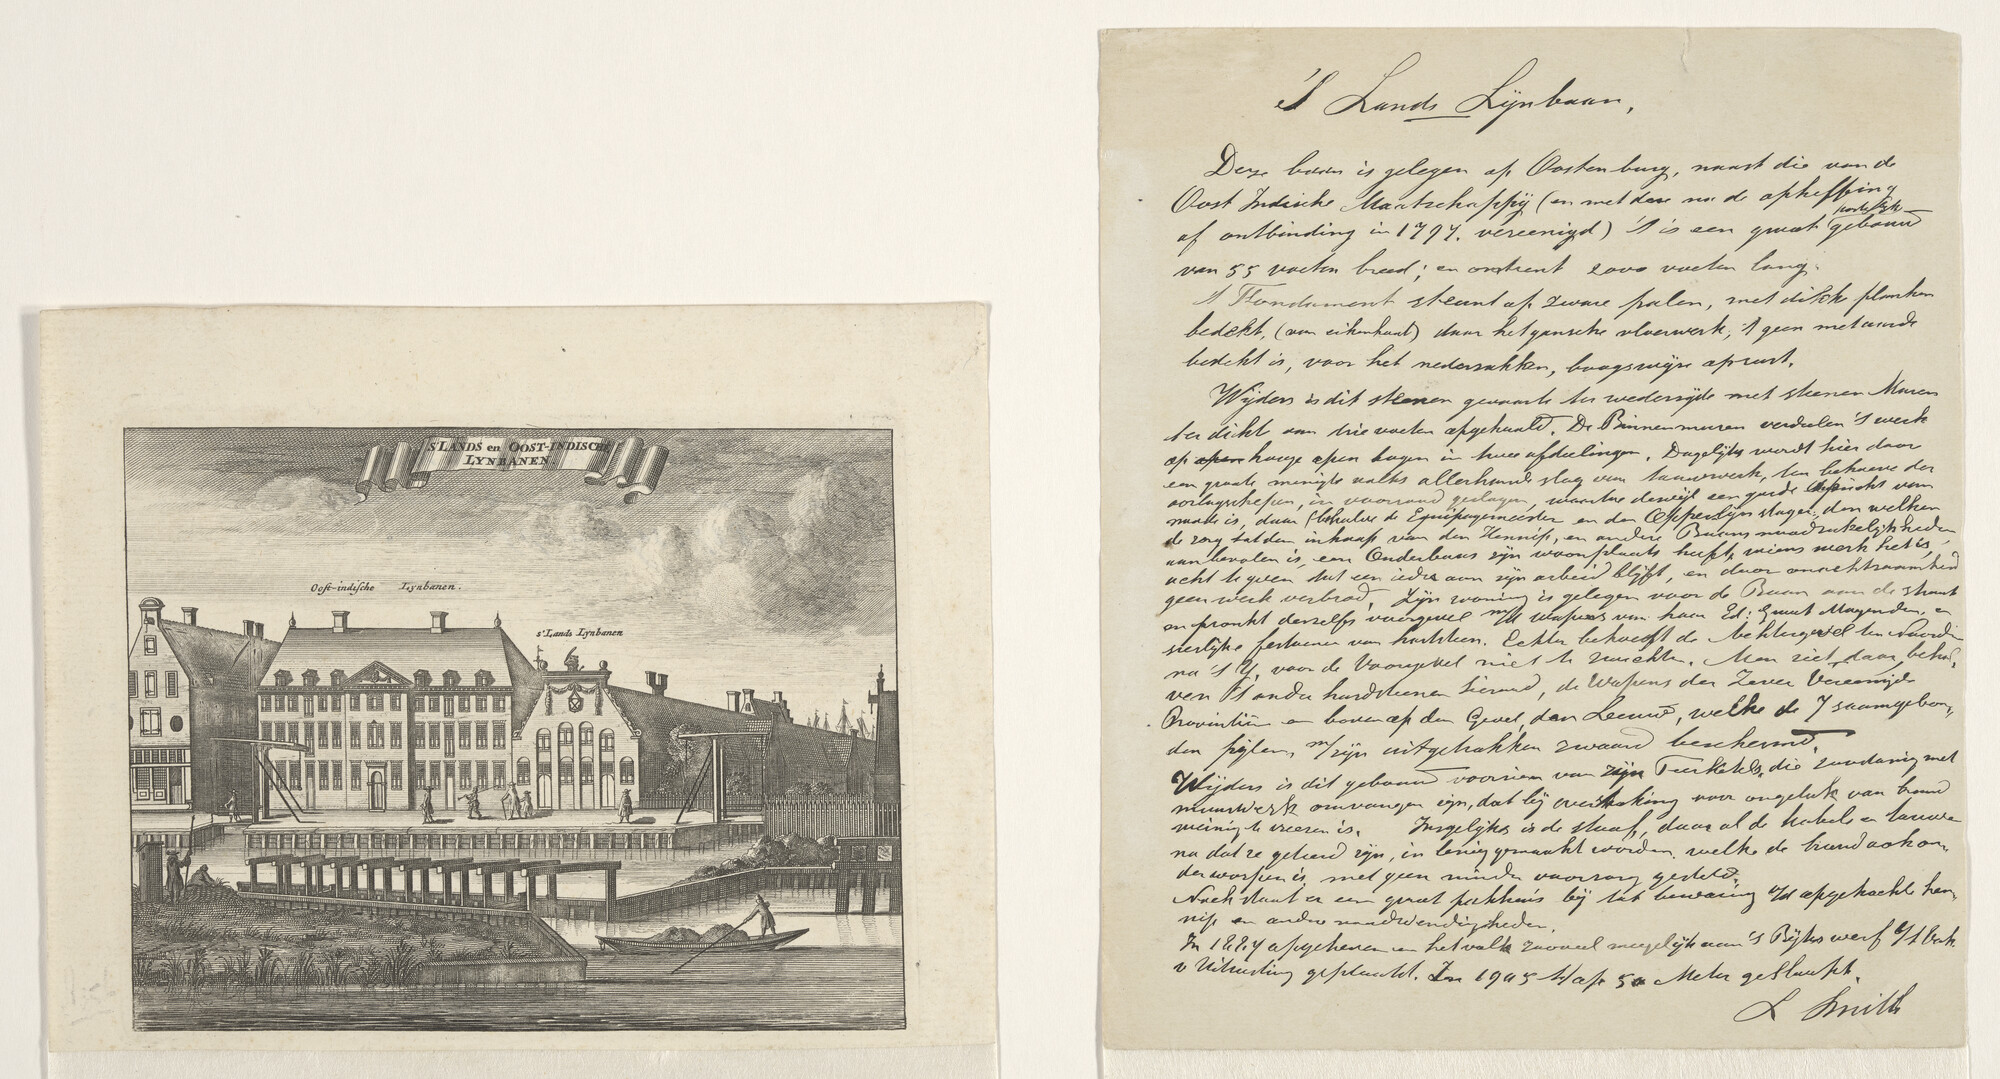 S'LANDS en OOST-INDISCHE
LYNBANEN.
Oost-indische Lynbanen.
s'Lands Lynbanen
'S Lands Lijnbaan,
Deze baan is gelegen op Oostenburg, naast die van de
Oost Indische Maatschappij (en met deze na de opheffing
of ontbinding in 1797. vereenigd) 't is een groot gebouw
van 55 voeten breed; en omtrent 2000 voeten lang.
't Fondament steunt op zware palen, met dikke planken
bedekt, (van eikenhout) daar het gansche vloerwerk, 't geen met aarde
bedekt is, voor het nederzakken, boogswijze op rust.
Wijders is dit steenen gevaarte ter wederzijde met steenen Muren
ter dikte van drie voeten opgehaald. De Binnenmuren verdeelen 't werk
op open hooge open bogen in twee afdeelingen. Dagelijks wordt hier door
een groote menigte volks allerhande slag van touwwerk, ten behoeve der
oorlogschepen, in voorraad geslagen, waartoe dewijl een goede opzicht van
noode is, daar (behalve de Equipagemeester en den Opperlijnslager, den welken
de zorg tot den inkoop van den Hennip, en andere Baans noodzakelijkheden
aanbevolen is, een Onderbaas zijn woonplaats heeft, wiens werk het is,
acht te geven dat een ieder aan zijn arbeid blijft, en door onachtzaamheid
geen werk verbrod. Zijn woning is gelegen voor de Baan aan de straat
en pronkt derzelfs voorgevel met wapens van haar Ed: Groot Mogenden, en
sierlijke festoenen van hardsteen. Echter behoeft de Achtergevel ten Noorden
na 't Y, voor de Voorgevel niet te zwichten. Men ziet daar beha-
ven 't ander hardsteenen sieraad, de Wapens der Zeven Vereenigde
Provintiën en boven op den Gevel, den Leeuw, welke de 7 saamgebon-
den pijlen, m/zijn uitgetrokken zwaard beschermd.
Wijders is dit gebouw voorzien van zijn Teerketels, die zoodanig met
muurwerk omvangen zijn, dat bij overkoking voor ongeluk van brand
weinig te vreezen is. Insgelijks is de stoof, daar al de kabels en touwen
na dat ze geteerd zijn, in lenig gemaakt worden, welke de brand ook on-
derworpen is, met geen minder voorzorg gesteld.
Noch staat er een groot pakhuis bij tot bewaring v/d opgekochte hen-
nip en andere noodwendigheden.
In 1884 opgeheven en het volk zooveel mogelijk aan 's Rijks werf
v Uitrusting geplaatst. In 1905 tot op 50 Meter gesloopt.
L Smith